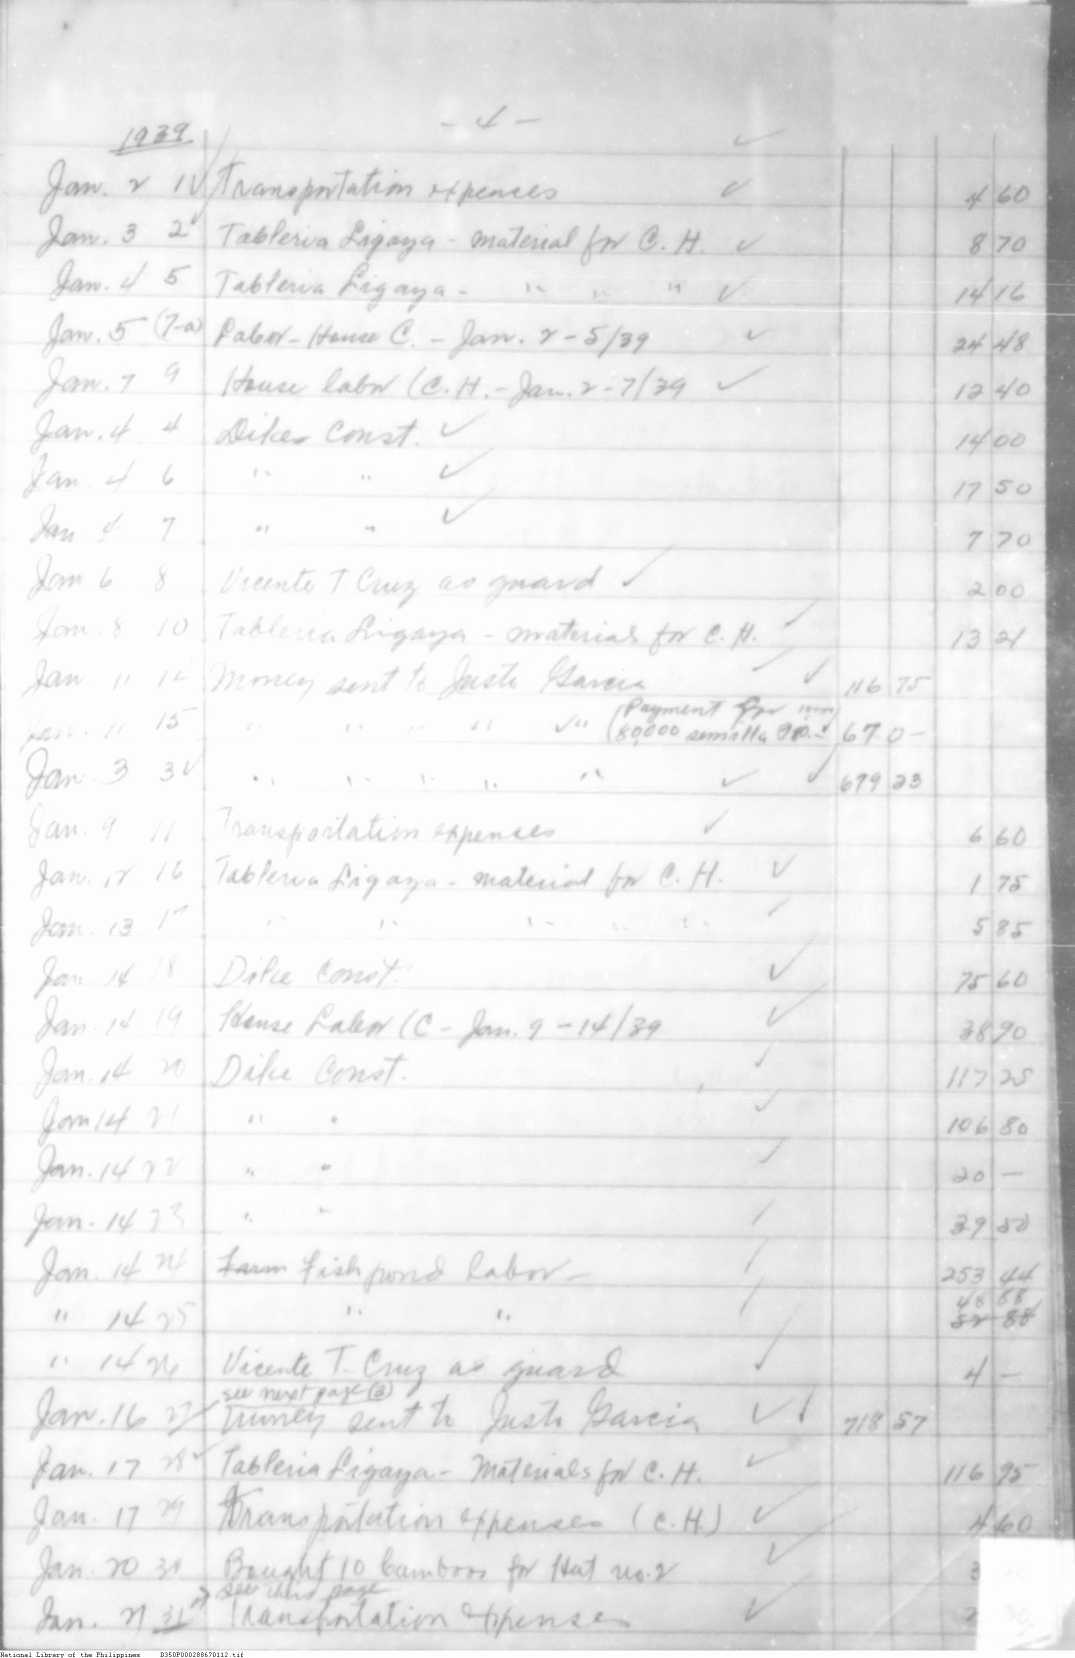 - 4 -
1939
Jan. 2 1 Transportation expenses 4 60
Jan. 3 2 Tableria Ligaya - material for C. H. 8 70
Jan. 4 5 Tableria Ligaya - " " " 14 16
Jan. 5 (7-a) Labor - House C. - Jan. 2 - 5/39 24 48
Jan. 7 9 House labor (C. H. - Jan. 2 - 7/39 12 40
Jan. 4 4 Dikes Const. 14 00
Jan. 4 6 " " 17 50
Jan 4 7 " " 7 70
Jan 6 8 Vicente T Cruz as guard 2 00
Jan. 8 10 Tableria Ligaya - materials for C. H. 13 21
Jan 11 12 Money sent to Justo Garcia 116 75
Jan. 11 15 " " " " " (Payment for
80,000 semilla 670 -
Jan. 3 3 " " " " " 679 23
Jan. 9 11 Transportation expenses 6 60
Jan. 12 16 Tableria Ligaya - material for C. H. 1 75
Jan. 13 17 " " " " " 5 85
Jan 14 18 Dike Const. 75 60
Jan. 14 19 House Labor (C - Jan. 9 - 14/39 38 90
Jan. 14 20 Dike Const. 117 25
Jan 14 21 " " 106 80
Jan. 14 22 " " 20 -
Jan. 14 23 " " 39 50
Jan. 14 24 Farm Fish pond labor - 253 44
48 88
" 14 25 " " 52 88
" 14 26 Vicente T. Cruz as guard 4 -
see next page (2)
Jan. 16 27 Money sent to Justo Garcia 718 57
Jan. 17 28 Tableria Ligaya - Materials for C. H. 116 95
Jan. 17 29 Transportation expenses (C. H.) 4 60
Jan. 20 30 Bought 10 bamboos for Hut no. 2 3
see this page
Jan. 21 31 Transportation expenses 2
National Library of the Philippines D350P000288670112.tif